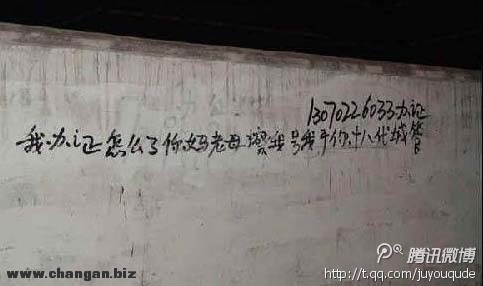 13070226033办证
我办证怎么了你妈老母谬我号我干你十八代城管
腾讯微博
www.changan.biz
http://t.qq.com/juyouqude